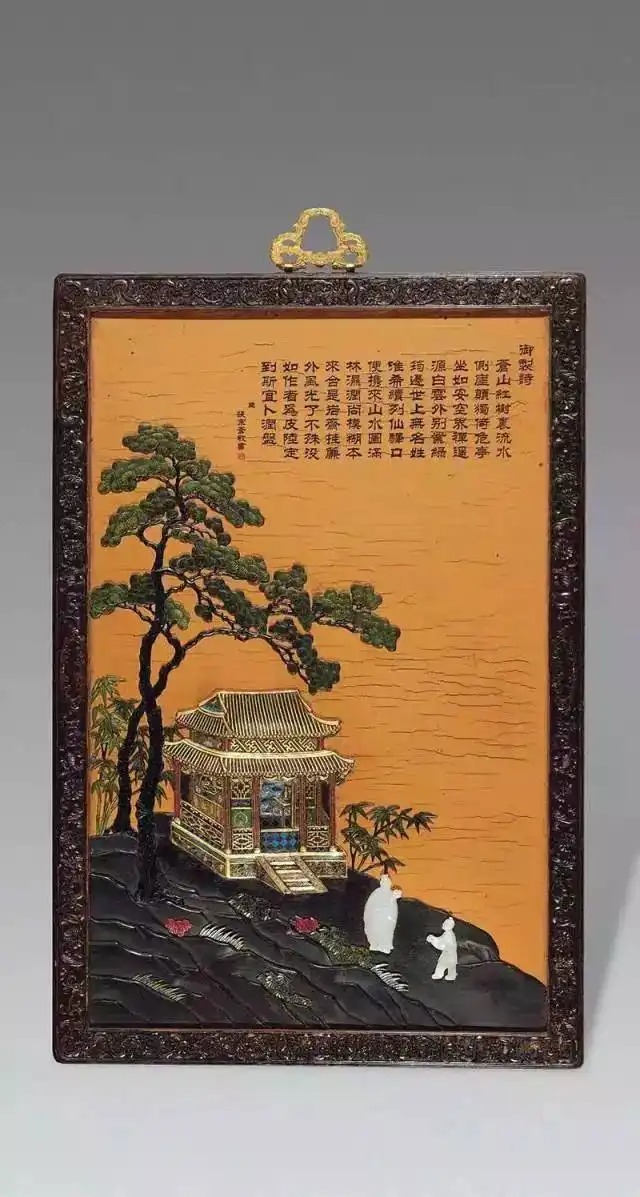 御製詩
蒼山紅樹裏流水
側崖頭獨倚危亭
坐如安空界禪還
源白雲外別業綠
筠邊世上無名姓
惟希續列仙驛口
便攜來山水圖滿
林濕潤尚模糊本
來合是岩齋挂簾
外風光了不殊沒
如作者爲皮陸定
到斯宜卜澗盤
臣敬書